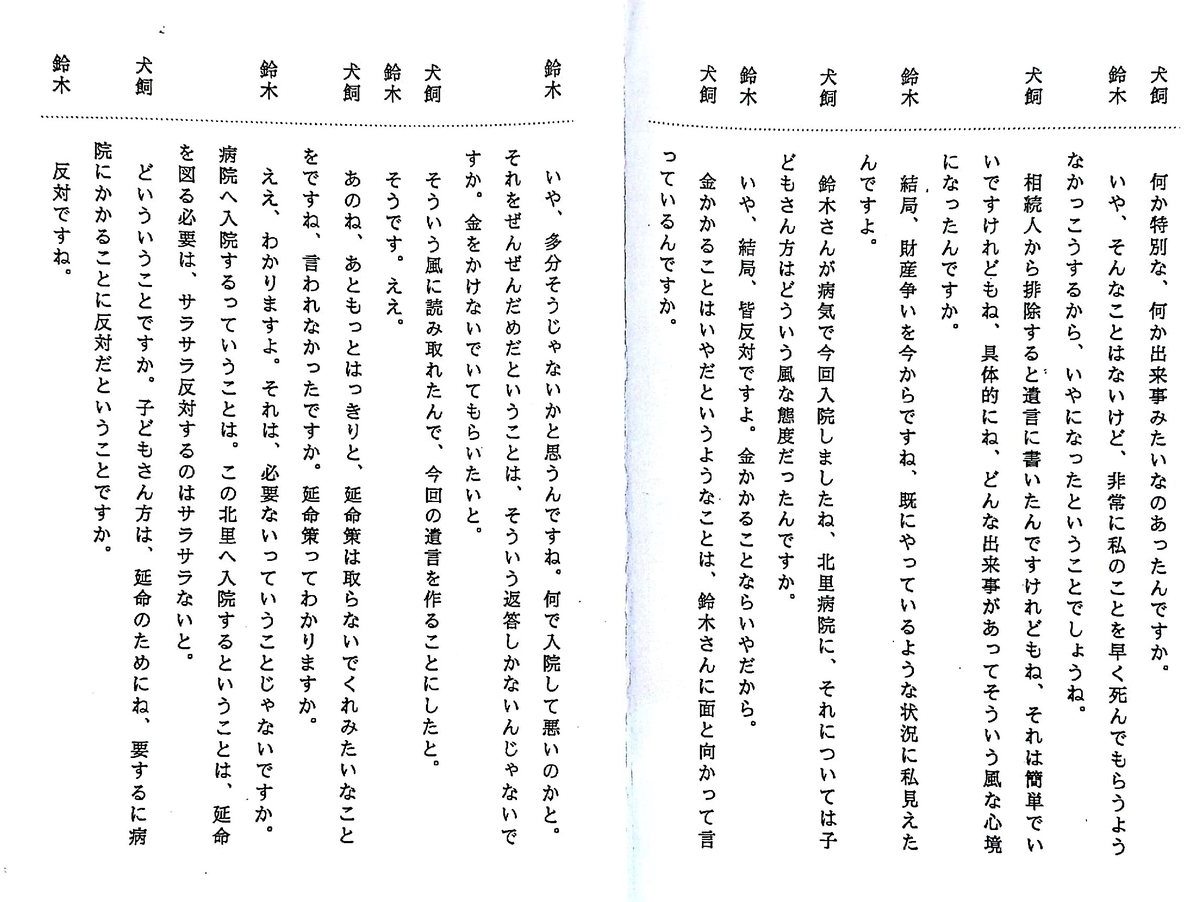 犬飼　何か特別な、何か出来事みたいなのあったんですか。
鈴木　いや、そんなことはないけど、非常に私のことを早く死んでもらうよう
なかっこうするから、いやになったということでしょうね。
犬飼　相続人から排除すると遺言に書いたんですけれどもね、それは簡単でい
いですけれどもね、具体的にね、どんな出来事があってそういう風な心境
になったんですか。
鈴木　結局、財産争いを今からですね、既にやっているような状況に私見えた
んですよ。
犬飼　鈴木さんが病気で今回入院しましたね、北里病院に、それについては子
どもさん方はどういう風な態度だったんですか。
鈴木　いや、結局、皆反対ですよ。金かかることならいやだから。
犬飼　金かかることはいやだというようなことは、鈴木さんに面と向かって言
っているんですか。
鈴木　いや、多分そうじゃないかと思うんですね。何で入院して悪いのかと。
それをぜんぜんだめだということは、そういう返答しかないんじゃないで
すか。金をかけないでいてもらいたいと。
犬飼　そういう風に読み取れたんで、今回の遺言を作ることにしたと。
鈴木　そうです。ええ。
犬飼　あのね、あともっとはっきりと、延命策は取らないでくれみたいなこと
をですね、言われなかったですか。延命策ってわかりますか。
鈴木　ええ、わかりますよ。それは、必要ないっていうことじゃないですか。
病院へ入院するっていうことは。この北里へ入院するということは、延命
を図る必要は、サラサラ反対するのはサラサラないと。
犬飼　どいういうことですか。子どもさん方は、延命のためにね、要するに病
院にかかることに反対だということですか。
鈴木　反対ですね。